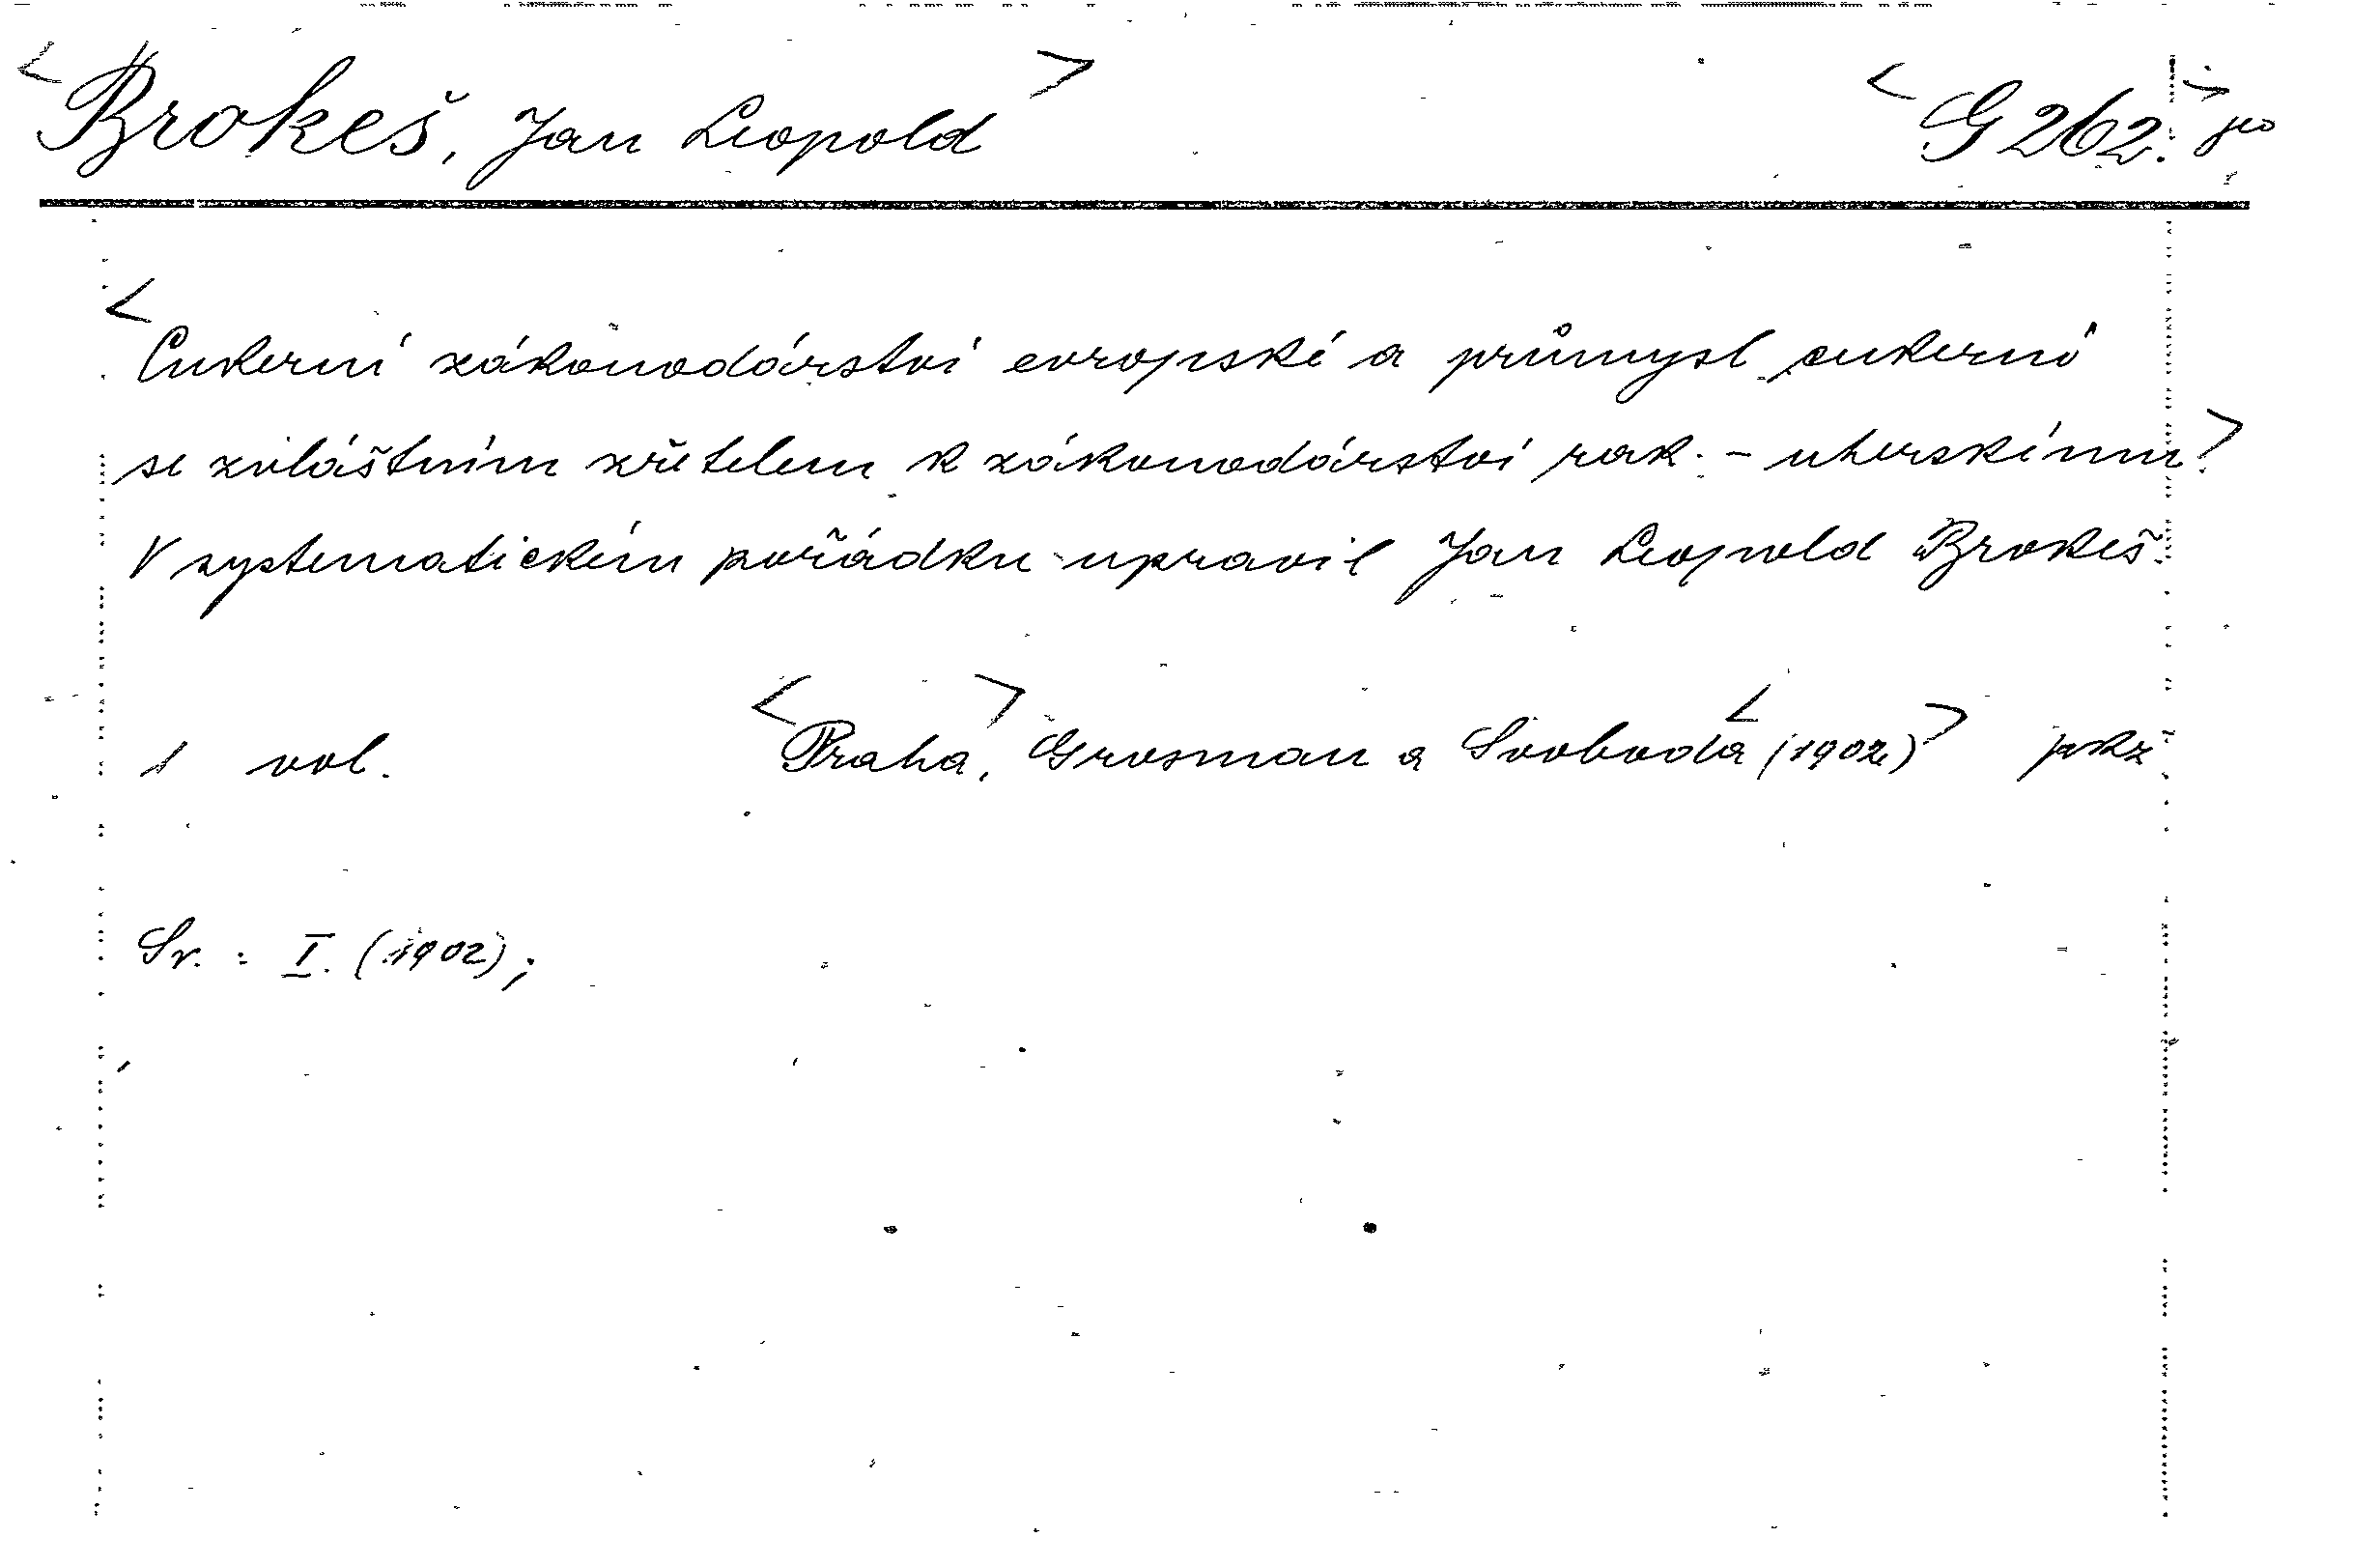 <Brokeš, Jan Leopold> <G 262.>
<Cukerní zákonodárství evropské a průmysl cukerní
se zvláštním zřetelem k zákonodárství rak.-uherskému>
V systematickém pořádku upravil Jan Leopold Brokeš.
1 vol. <Praha>, Grosman a Svoboda <(1902)>
Sv.: I. (1902);